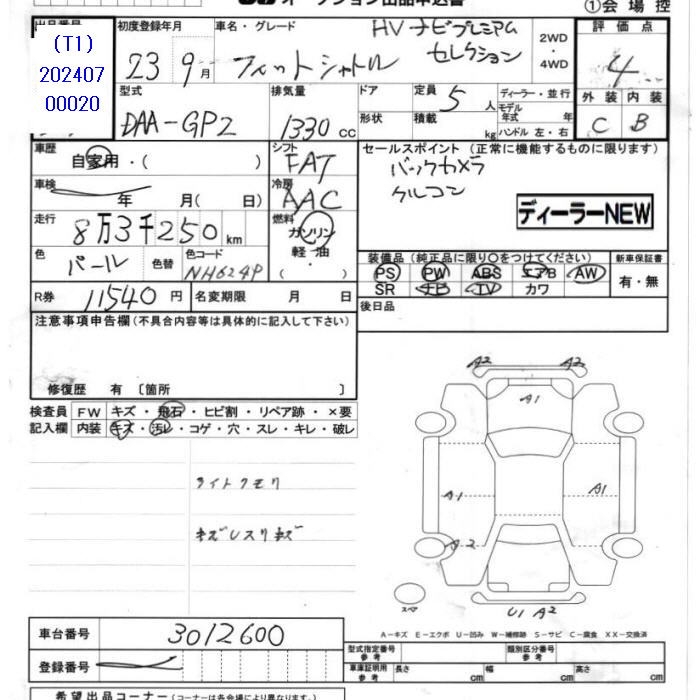 オークション出品申込書
①会場控
(T1)
202407
00020
初度登録年月
23 9月
車名・グレード
HV ナビプレミアム
セレクション
フィットシャトル
2WD
・
4WD
評価点
4
外装 内装
C B
型式
DAA-GP2
排気量
1330 cc
ドア
形状
定員 5 人
積載 kg
ディーラー・並行
モデル年式 年
ハンドル 左・右
車歴 自家用・( )
シフト
FAT
車検 年 月( 日)
冷房
AAC
セールスポイント(正常に機能するものに限ります)
バックカメラ
クルコン
ディーラーNEW
走行 8万3千250 km
燃料
ガソリン
軽・油
( ・ )
色 パール 色替
色コード NH624P
装備品(純正品に限り○をつけてください)
PS PW ABS エアB AW
SR ナビ TV カワ
新車保証書
有・無
R券 11540 円 名変期限 月 日
後日品
注意事項申告欄(不具合内容等は具体的に記入して下さい)
修復歴 有 〔箇所 〕
検査員 FW キズ・飛石・ヒビ割・リペア跡・×要
記入欄 内装 キズ・汚レ・コゲ・穴・スレ・キレ・破レ
ライトクモリ
キズUスリキズ
A2 A2
A1
A1 A1
A2
スペア
U1 A2
A-キズ E-エクボ U-凹み W-補修跡 S-サビ C-腐食 XX-交換済
車台番号 3012600
登録番号
型式指定番号参考 類別区分番号参考
車庫証明用参考 長さ cm 幅 cm 高さ cm
希望出品コーナー(コーナーは各会場により異なります)